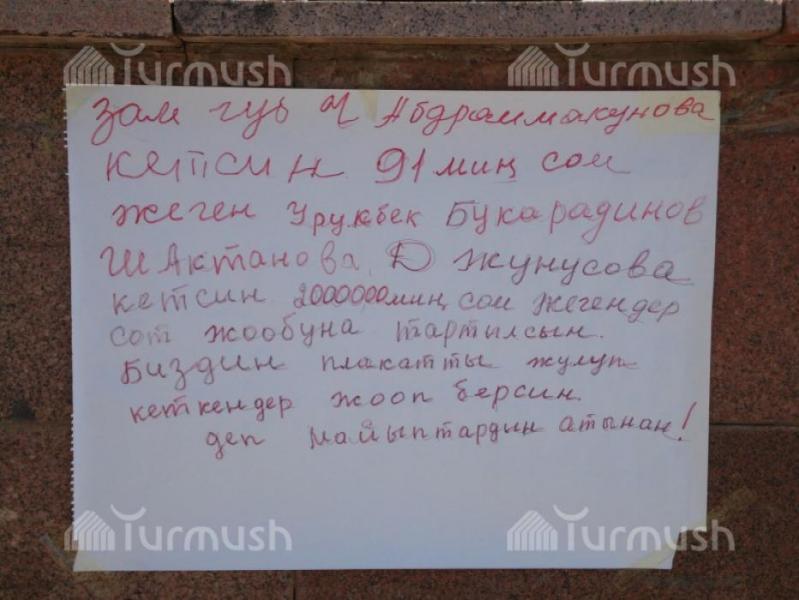 Turmush Turmush
зам губ Ч Абдраимакунова
кетсин 91 миң сом
жеген Урукбек Букарадинов
Ш Актанова, Д Жунусова
кетсин 2000000миң сом жегендер
сот жообуна тартылсын.
Биздин плакатты жулуп
кеткендер жооп берсин.
деп майыптардын атынан!
Turmush Turmush